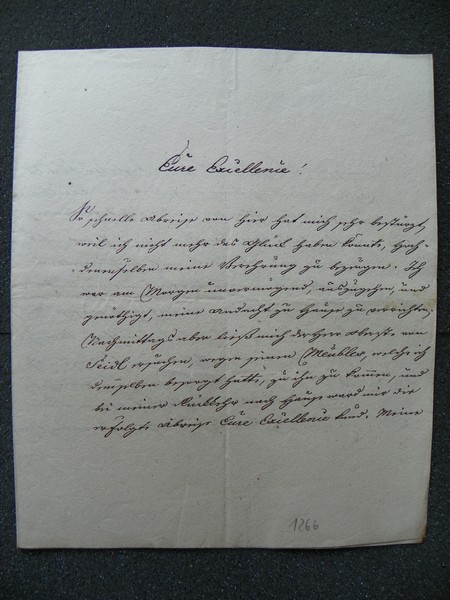 Eure Excellenie!
So schnelle Abreise von hier hat mich sehr bestürzt,
weil ich nicht mehr das Glück haben konnte, Hoch-
denenselben meine Verehrung zu bezeugen. Ich
war am Morgen unvermögend auszugehen, und
genöthigt, meine Andacht zu Hause zu verrichten.
Nachmittags aber ließ mich der Herr Oberst von
Seidl ersuchen, wegen seinen Meubler, welche ich
demselben besorgt hatte, zu ihm zu kommen, und
bei meiner Rückkehr nach Hause ward mir die
erfolgte Abreise Eure Excellenie kund. Meine
1266